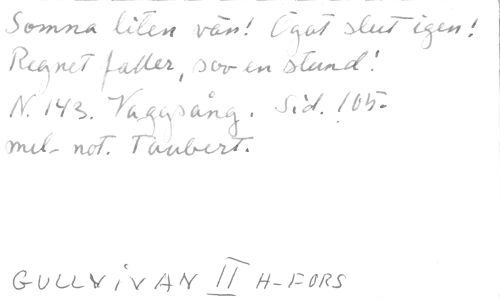 Somna liten vän! Ögat slut igen!
Regnet faller, sov en stund!
N. 143. Vaggsång. Sid. 105.
mel- not. Taubert.
GULLVIVAN II H-FORS